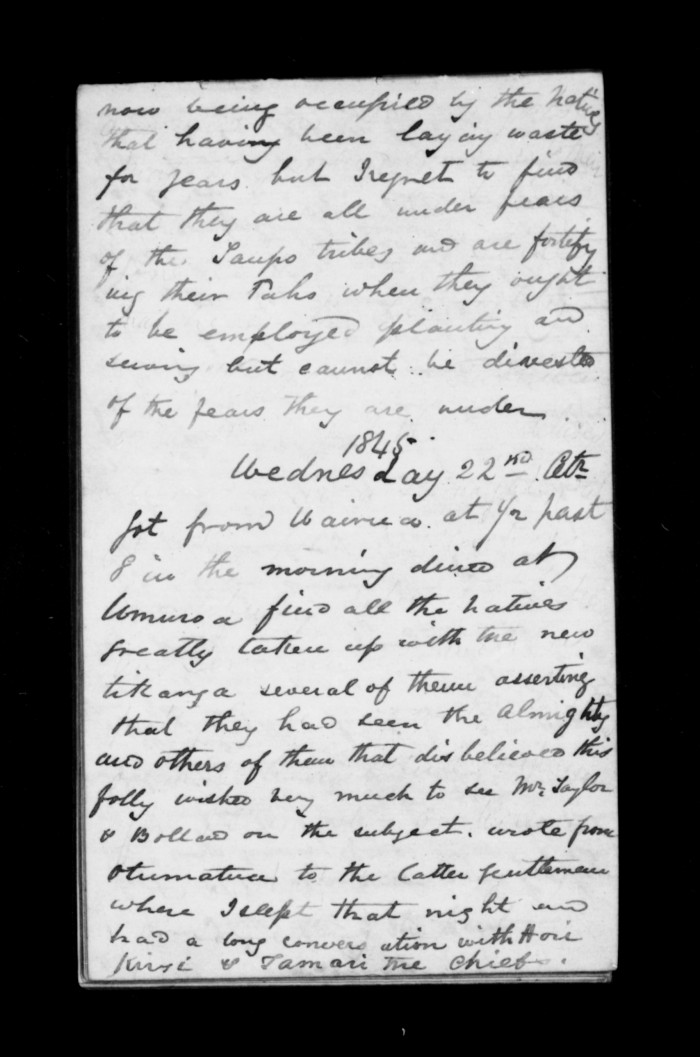 now being occupied by the Natives
that having been laying waste
for years but I regret to find
that they are all under fears
of the Taupo tribes and are fortify
ing their Pahs when they ought
to be employed planting and
sewing but cannot be divested
of the fears they are under
1845
Wednesday 22nd Octr
Got from at 1/2 past
8 in the morning dined at
Umuroa find all the Natives
greatly taken up with the new
tikanga several of them asserting
that they had seen the Almighty
and others of them that disbelieved this
folly wished very much to see Mr Taylor
& Bolland on the subject. wrote from
Otumatua to the latter gentleman
where I slept that night and
had a long conversation with Hori
Kingi & Tamari the Chiefs.